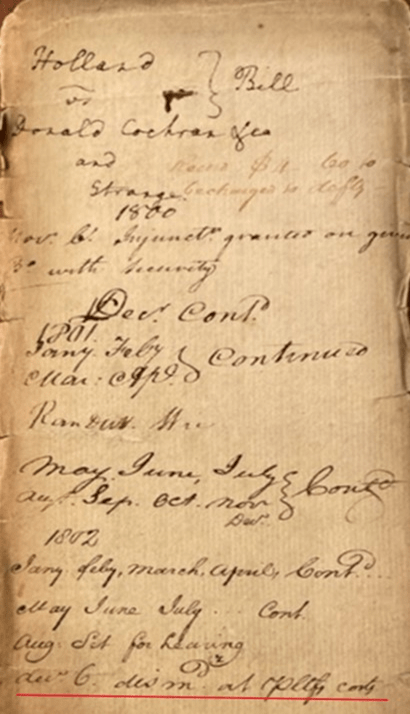 Holland
vs } Bill
Donald Cochran &co
and
Strange
to be charged to defts
1800
Nov. 6. Injunctn. granted on givin
Bo with Security
Decr. Contd.
1801.
Jany. Feby } Continued
Mar: Apl.
May. June, July } Contd
Augt. Sep. Oct. Nov
Decr.
1802
Jany. feby, march, april, Contd...
May June July... Cont.
Aug. Set for hearing
decr 6. dismd. at Pltfs costs